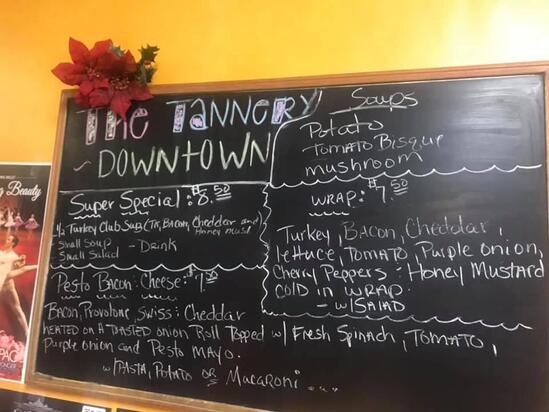 The TANNERY
~ DOWNTOWN
Soups
Potato
TOMATO Bisque
mushroom
Super Special: $8.50
½ Turkey Club Sug (TK, Bacon, Cheddar and
Honey must
- Small Soup - Drink
- Small Salad
WRAP: $7.50
Turkey, Bacon, Cheddar,
lettuce, TOMATO, Purple onion,
Cherry Peppers : Honey Mustard
COLD in WRAP.
- w/SALAD
Pesto Bacon: Cheese: $7.50
Bacon, Provolone, Swiss: Cheddar
HEATED ON A TOASTED onion Roll Topped w/ Fresh Spinach, TOMATO,
Purple onion and Pesto MAYO.
w/ PASTA, POTATO OR Macaroni
Beauty